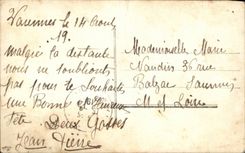 Varennes le 14 Août
19.
malgré la distante
nous ne t'oublions
pas pour te Souhaiter
une Bonne et Heureuse
fête Deux Gosses
Jean Pierre
Mademoiselle Marie
Naudin 36 rue
Balzac Saumur
M et Loire